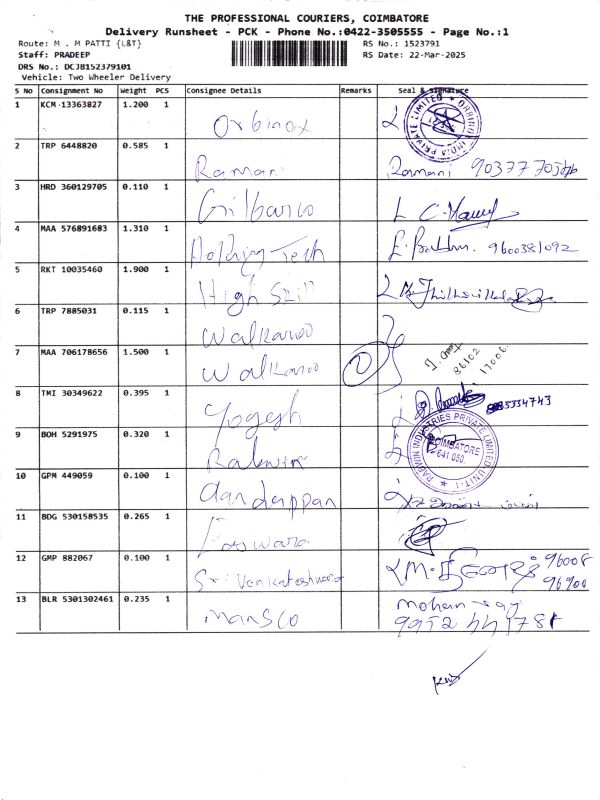 THE PROFESSIONAL COURIERS, COIMBATORE
Delivery Runsheet - PCK - Phone No.:0422-3505555 - Page No.:1
Route: M . M PATTI {L&T}
RS No.: 1523791
Staff: PRADEEP
RS Date: 22-Mar-2025
DRS No.: DCJB152379101
Vehicle: Two Wheeler Delivery
S No Consignment No Weight PCS Consignee Details Remarks Seal & Signature
1 KCM 13363827 1.200 1 Orbinox
ORBINOX INDIA PRIVATE LIMITED
2 TRP 6448820 0.585 1 Ramani Ramani
3 HRD 360129705 0.110 1 Gilbarco
4 MAA 576891683 1.310 1 Tech 9600381092
5 RKT 10035460 1.900 1 High Skill
6 TRP 7885031 0.115 1 Walkaroo
7 MAA 706178656 1.500 1 Walkaroo 2 86102 17006
8 TMI 30349622 0.395 1 Yogesh 5334743
9 BOH 5291975 0.320 1
INDUSTRIES PRIVATE LIMITED UNIT-I COIMBATORE
10 GPM 449059 0.100 1
11 BDG 530158535 0.265 1 Eswara
12 GMP 882067 0.100 1 Sri Venkateshwara 96008 96900
13 BLR 5301302461 0.235 1 Mansco mohan raj